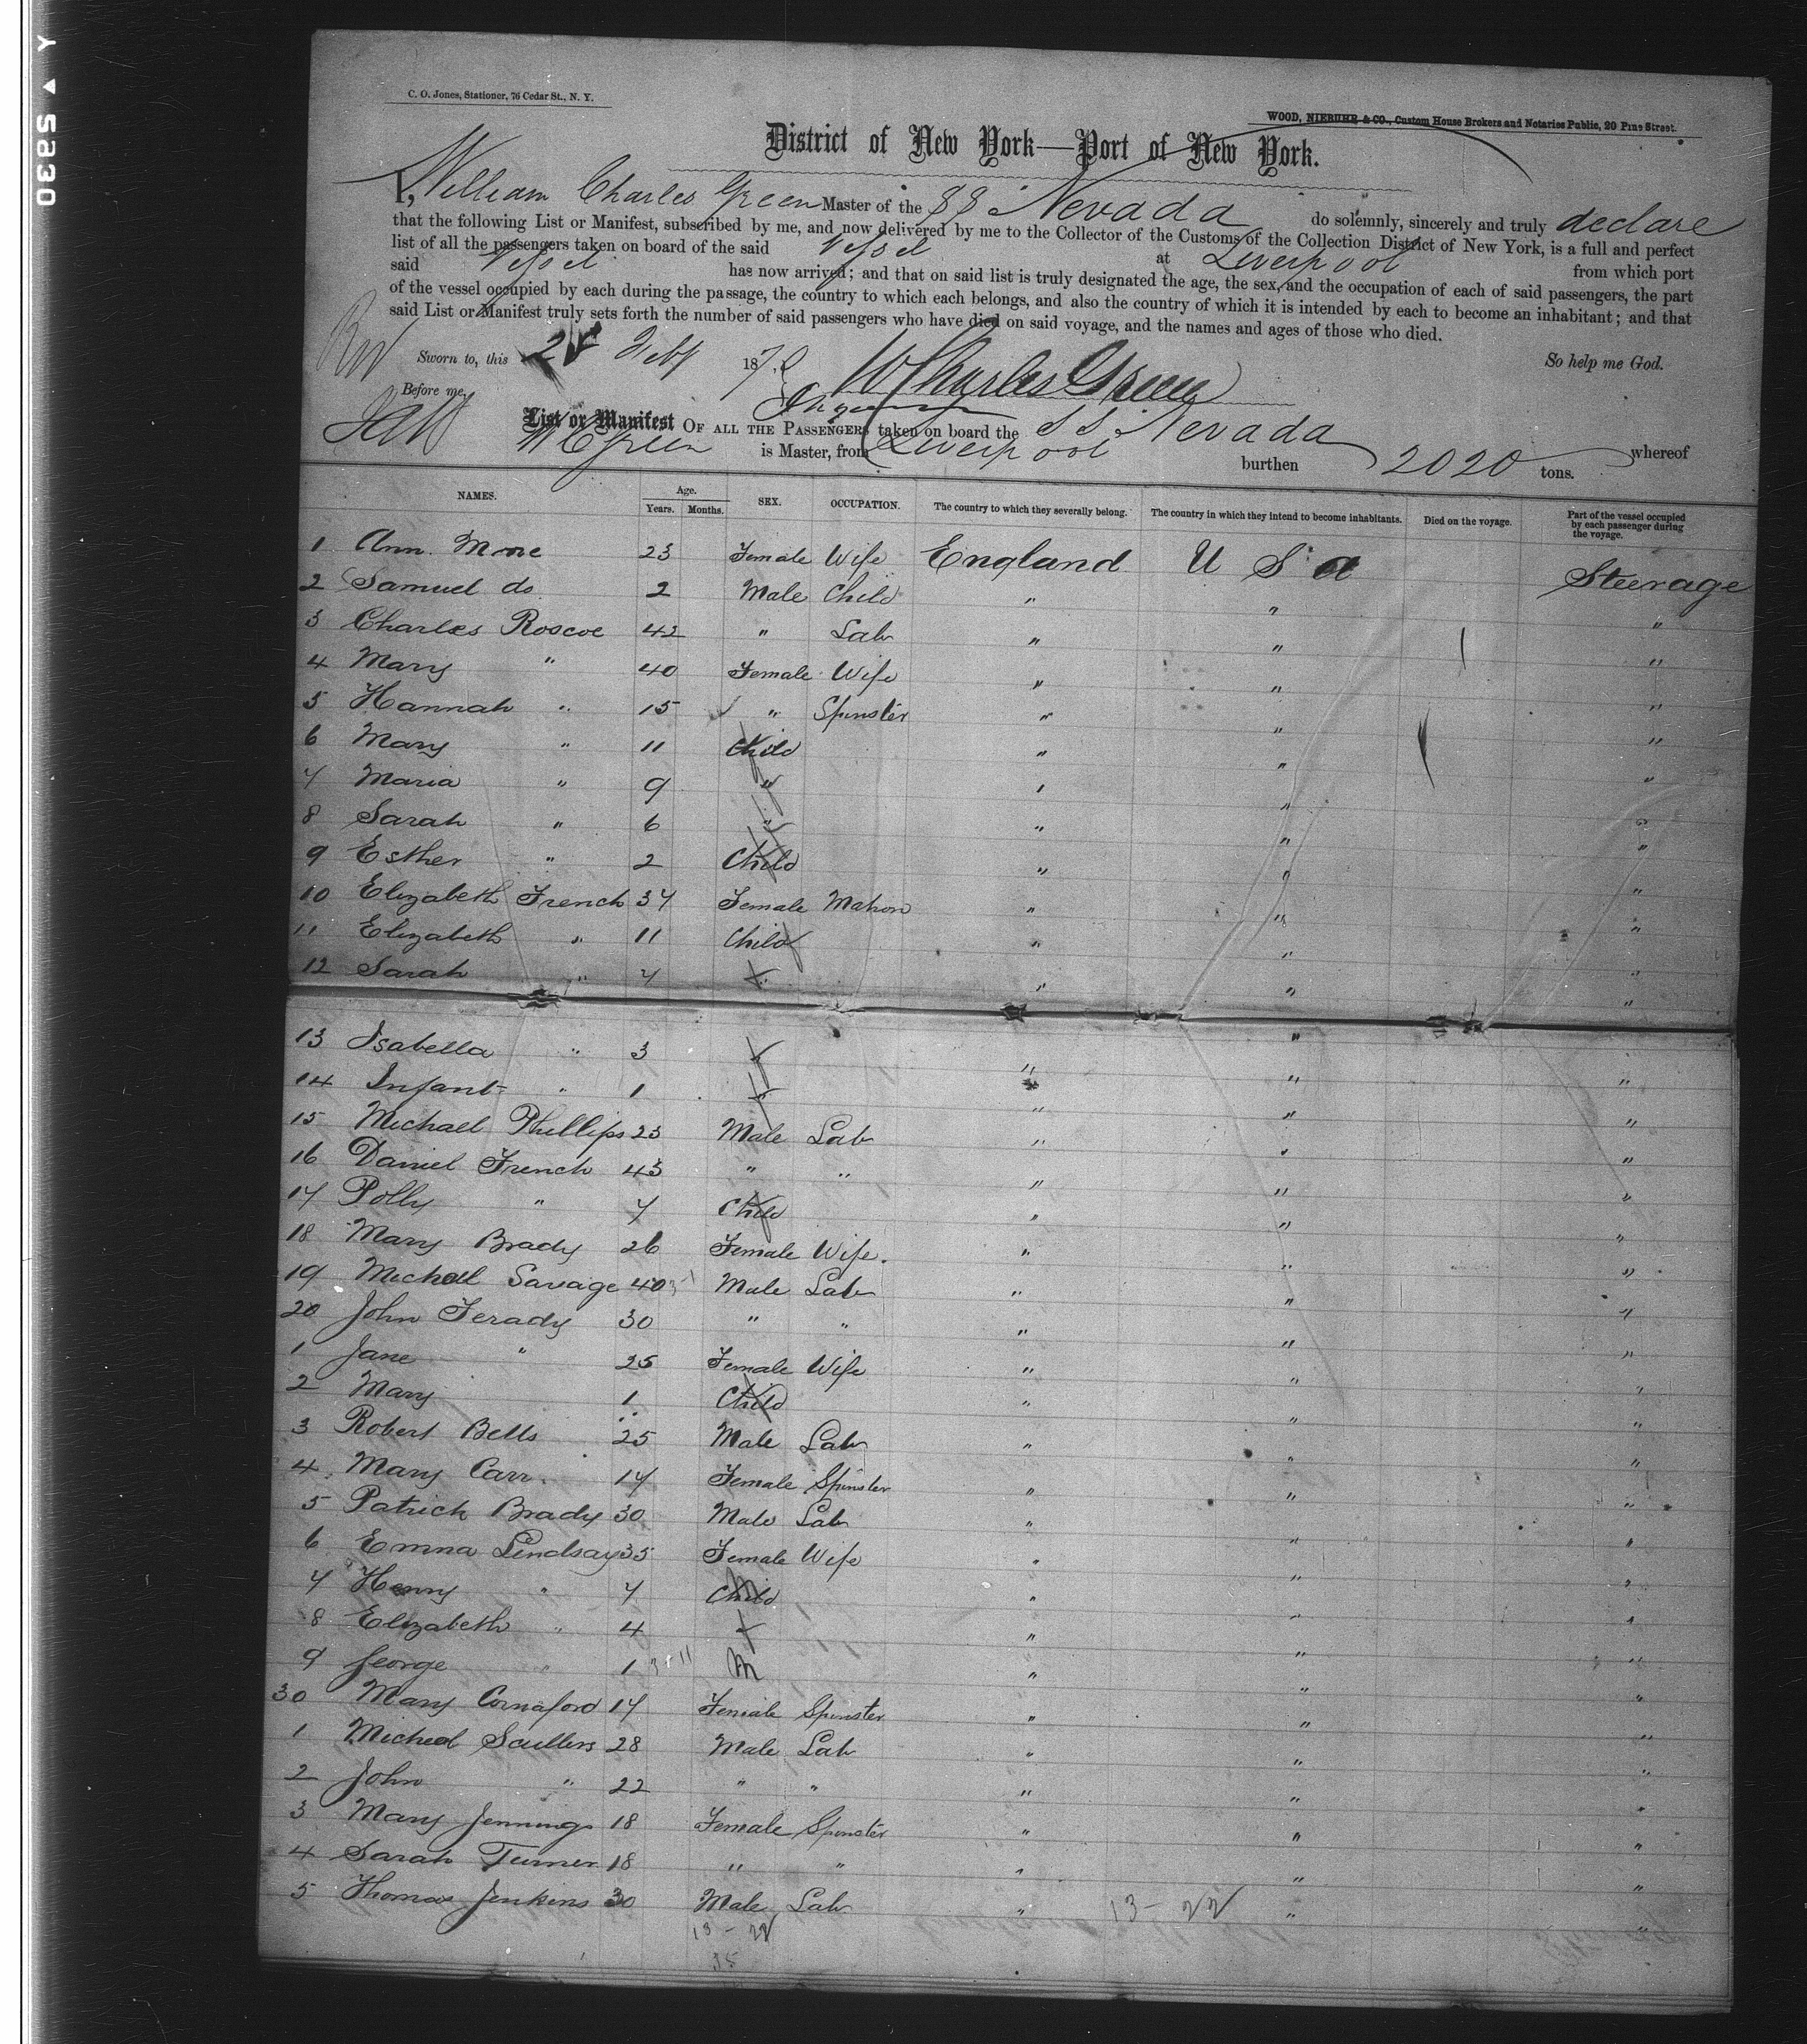 Y ◄ S2330
C. O. Jones, Stationer, 76 Cedar St., N. Y.
WOOD, NIEBUHR & CO., Custom House Brokers and Notaries Public, 20 Pine Street.
District of New York—Port of New York.
I, William Charles Green Master of the SS Nevada do solemnly, sincerely and truly declare
that the following List or Manifest, subscribed by me, and now delivered by me to the Collector of the Customs of the Collection District of New York, is a full and perfect
list of all the passengers taken on board of the said Vessel at Liverpool from which port
said Vessel has now arrived; and that on said list is truly designated the age, the sex, and the occupation of each of said passengers, the part
of the vessel occupied by each during the passage, the country to which each belongs, and also the country of which it is intended by each to become an inhabitant; and that
said List or Manifest truly sets forth the number of said passengers who have died on said voyage, and the names and ages of those who died.
Sworn to, this Feby 187 So help me God.
W Charles Green
Before me,
List or Manifest OF ALL THE PASSENGERS taken on board the SS Nevada whereof
W C Green is Master, from Liverpool burthen 2020 tons.
NAMES. Age. Years. Months. SEX. OCCUPATION. The country to which they severally belong. The country in which they intend to become inhabitants. Died on the voyage. Part of the vessel occupied by each passenger during the voyage.
1 Ann Moore 23 Female Wife England U S a Steerage
2 Samuel do 2 Male Child " " "
3 Charles Roscoe 42 " Lab " " "
4 Mary " 40 Female Wife " " "
5 Hannah " 15 " Spinster " " "
6 Mary " 11 Child " " "
7 Maria " 9 " " " "
8 Sarah " 6 " " " "
9 Esther " 2 Child " " "
10 Elizabeth French 37 Female Matron " " "
11 Elizabeth " 11 Child " " "
12 Sarah " 7 " " " "
13 Isabella " 3 " " " "
14 Infant " 1 " " " "
15 Michael Phillips 23 Male Lab " " "
16 Daniel French 43 " " " " "
17 Polly " 7 Child " " "
18 Mary Brady 26 Female Wife. " " "
19 Michael Savage 40 Male Lab " " "
20 John Terady 30 " " " " "
1 Jane " 25 Female Wife " " "
2 Mary 1 Child " " "
3 Robert Betts 25 Male Lab " " "
4 Mary Carr 17 Female Spinster " " "
5 Patrick Brady 30 Male Lab " " "
6 Emma Lindsay 35 Female Wife " " "
7 Henry " 7 Child " " "
8 Elizabeth " 4 " " "
9 George " 1 M " " "
30 Mary Cornaford 17 Female Spinster " " "
1 Micheal Scullers 28 Male Lab " " "
2 John " 22 " " " " "
3 Mary Jennings 18 Female Spinster " " "
4 Sarah Turner 18 " " " " "
5 Thomas Jenkins 30 Male Lab " 13-22 " "
13-22
35